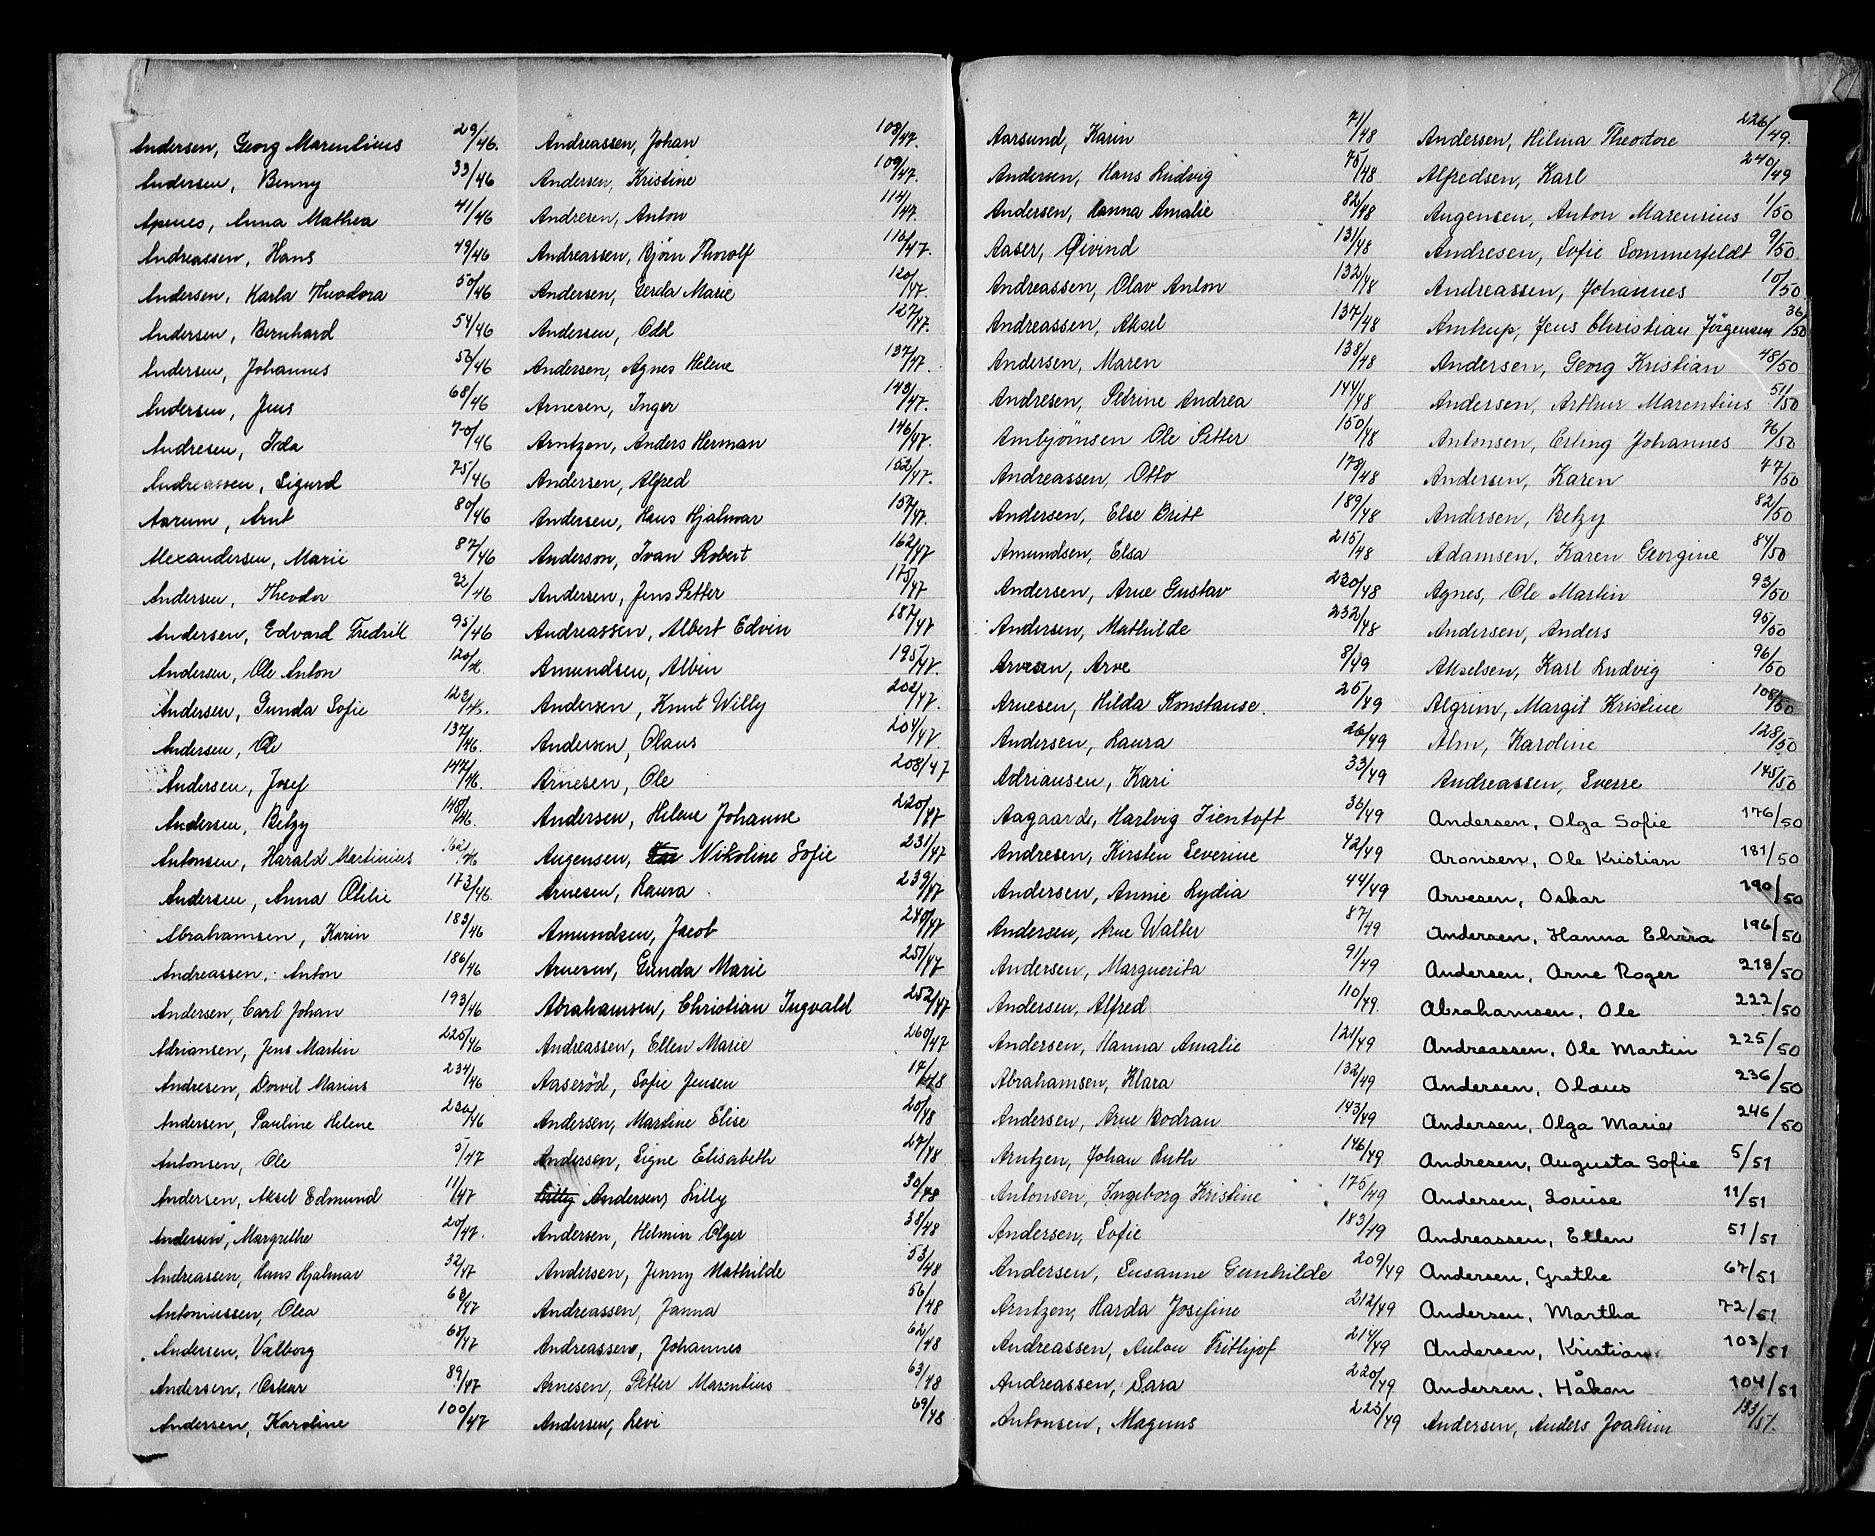 Andersen, Georg Marentius 29/46.
Andersen, Benny 33/46
Apenes, Anna Mathea 41/46
Andreassen, Hans 49/46
Andersen, Karla Theodora 50/46
Andersen, Bernhard 54/46
Andersen, Johannes 56/46
Andersen, Jens 68/46
Andresen, Ida 70/46
Andreassen, Sigurd 75/46
Aarum, Arnt 80/46
Alexandersen, Marie 87/46
Andersen, Theodor 92/46
Andersen, Edvard Fredrik 95/46
Andersen, Ole Anton 120/46
Andersen, Gunda Sofie 123/46.
Andersen, Ole 137/46.
Andersen, Josef 147/46.
Andersen, Betzy 148/46.
Antonsen, Harald Martinius 162/46
Andersen, Anna Otilie 173/46.
Abrahamsen, Karin 183/46
Andreassen, Anton 186/46
Andersen, Carl Johan 193/46
Adriansen, Jens Martin 225/46
Andresen, Dorvil Marius 234/46
Andersen, Pauline Helene 230/46
Antonsen, Ole 5/47
Andersen, Aksel Edmund 11/47
Andersen, Margrethe 20/47.
Andreassen, Hans Hjalmar 32/47
Antoniussen, Olea 62/47
Andersen, Valborg 65/47
Andersen, Oskar 89/47
Andersen, Karoline 100/47
Andreassen, Johan 108/47.
Andersen, Kristine 109/47.
Andresen, Anton 114/47.
Andreassen, Bjørn Thorolf 116/47.
Andersen, Gerda Marie 120/47.
Andersen, Odd 127/47.
Andersen, Agnes Helene 137/47.
Arnesen, Inger 143/47.
Arntzen, Anders Herman 146/47.
Andersen, Alfred 152/47.
Andersen, Hans Hjalmar 157/47.
Anderson, Ivan Robert 162/47
Andersen, Jens Petter 175/47
Andreassen, Albert Edvin 187/47
Amundsen, Albin 195/47.
Andersen, Knut Willy 202/47.
Andersen, Olaus 204/47.
Arnesen, Ole 208/47
Andersen, Helene Johanne 220/47
Augensen, Nikoline Sofie 231/47
Arnesen, Laura 239/47
Amundsen, Jacob 240/47
Arnesen, Gunda Marie 251/47
Abrahamsen, Christian Ingvald 252/47
Andreassen, Ellen Marie 260/47
Aaserød, Sofie Jensen 17/48
Andersen, Martine Elise 20/48
Andersen, Signe Elisabeth 27/48
Lilly Andersen, Lilly 30/48
Andersen, Helmin Olger 38/48
Andersen, Jenny Mathilde 53/48
Andreassen, Janna 56/48
Andreassen, Johannes 62/48
Arnesen, Petter Marentius 63/48
Andersen, Levi 69/48
Aarsund, Karin 71/48
Andersen, Hans Ludvig 75/48
Andersen, Hanna Amalie 82/48
Aaser, Øivind 131/48
Andreassen, Olav Anton 132/48
Andreassen, Aksel 137/48
Andersen, Maren 138/48
Andresen, Petrine Andrea 144/48
Ambjørnsen Ole Petter 150/48
Andreassen, Otto 178/48
Andersen, Else Britt 189/48
Amundsen, Elsa 215/48
Andersen, Arne Gustav 230/48
Andersen, Mathilde 232/48
Arvesen, Arve 8/49
Arnesen, Hilda Konstanse. 25/49
Andersen, Laura 26/49
Adriansen, Kari 33/49
Aagaard, Hartvig Tientoft 36/49
Andresen, Kirsten Severine 42/49
Andersen, Annie Lydia 44/49
Andersen, Arne Walter 87/49
Andersen, Marguerita 91/49
Andersen, Alfred 110/49.
Andersen, Hanna Amalie 121/49
Abrahamsen, Klara 132/49
Andersen, Arne Bodran 143/49
Arntzen, Johan Luth 146/49
Antonsen, Ingeborg Kristine 175/49
Andersen, Sofie 183/49
Andersen, Susanne Gunhilde 209/49
Arntzen, Harda Josefine 212/49
Andreassen, Anton Frithjof 214/49
Andreassen, Sara 220/49
Antonsen, Magnus 223/49
Andersen, Hilma Theodore 226/49.
Alfredsen, Karl 240/49
Augensen, Anton Marensius 1/50
Andresen, Sofie Sommerfeldt 9/50.
Andreassen, Johannes 10/50
Amtrup, Jens Christian Jørgensen 36/50
Andersen, Georg Kristian 48/50
Andersen, Arthur Marentius 51/50
Antonsen, Erling Johannes 76/50
Andersen, Karen 77/50
Andersen, Betzy 82/50
Adamsen, Karen Georgine 84/50
Agnes, Ole Martin 93/50
Andersen, Anders 95/50
Akselsen, Karl Ludvig 96/50
Algrim, Margit Kristine 108/50
Alm, Karoline 128/50
Andreassen, Sverre 145/50
Andersen, Olga Sofie 176/50
Aronsen, Ole Kristian 181/50
Arvesen, Oskar 190/50
Andersen, Hanna Elvira 196/50
Andersen, Arne Roger 218/50
Abrahamsen, Ole 222/50
Andreassen, Ole Martin 225/50
Andersen, Olaus 236/50
Andersen, Olga Marie 246/50
Andresen, Augusta Sofie 5/51
Andersen, Louise 11/51
Andreassen, Ellen 51/51
Andersen, Grethe 67/51
Andersen, Martha 72/51
Andersen, Kristian 103/51
Andersen, Håkon 104/51
Andersen, Anders Joakim 133/51.